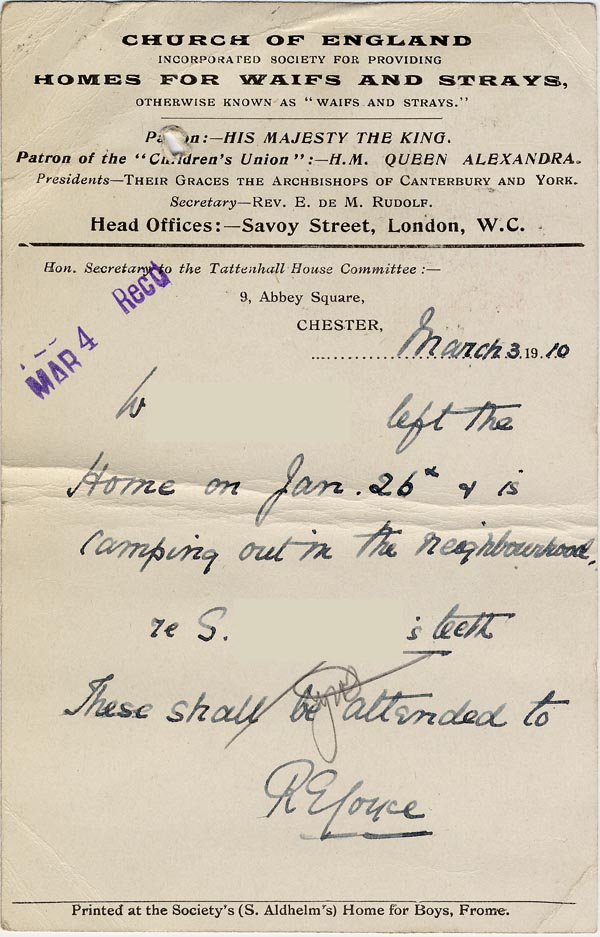 CHURCH OF ENGLAND
INCORPORATED SOCIETY FOR PROVIDING
HOMES FOR WAIFS AND STRAYS,
OTHERWISE KNOWN AS "WAIFS AND STRAYS."
Pa on:—HIS MAJESTY THE KING.
Patron of the "Children's Union":—H.M. QUEEN ALEXANDRA.
Presidents—THEIR GRACES THE ARCHBISHOPS OF CANTERBURY AND YORK.
Secretary—REV. E. DE M. RUDOLF.
Head Offices:—Savoy Street, London, W.C.
Hon. Secretary to the Tattenhall House Committee:—
9, Abbey Square,
CHESTER,
RECD
MAR 4
March 3. 19.10
W left the
Home on Jan. 26th & is
camping out in the neighbourhood,
re S. 's teeth
These shall be attended to
Printed at the Society's (S. Aldhelm's) Home for Boys, Frome.